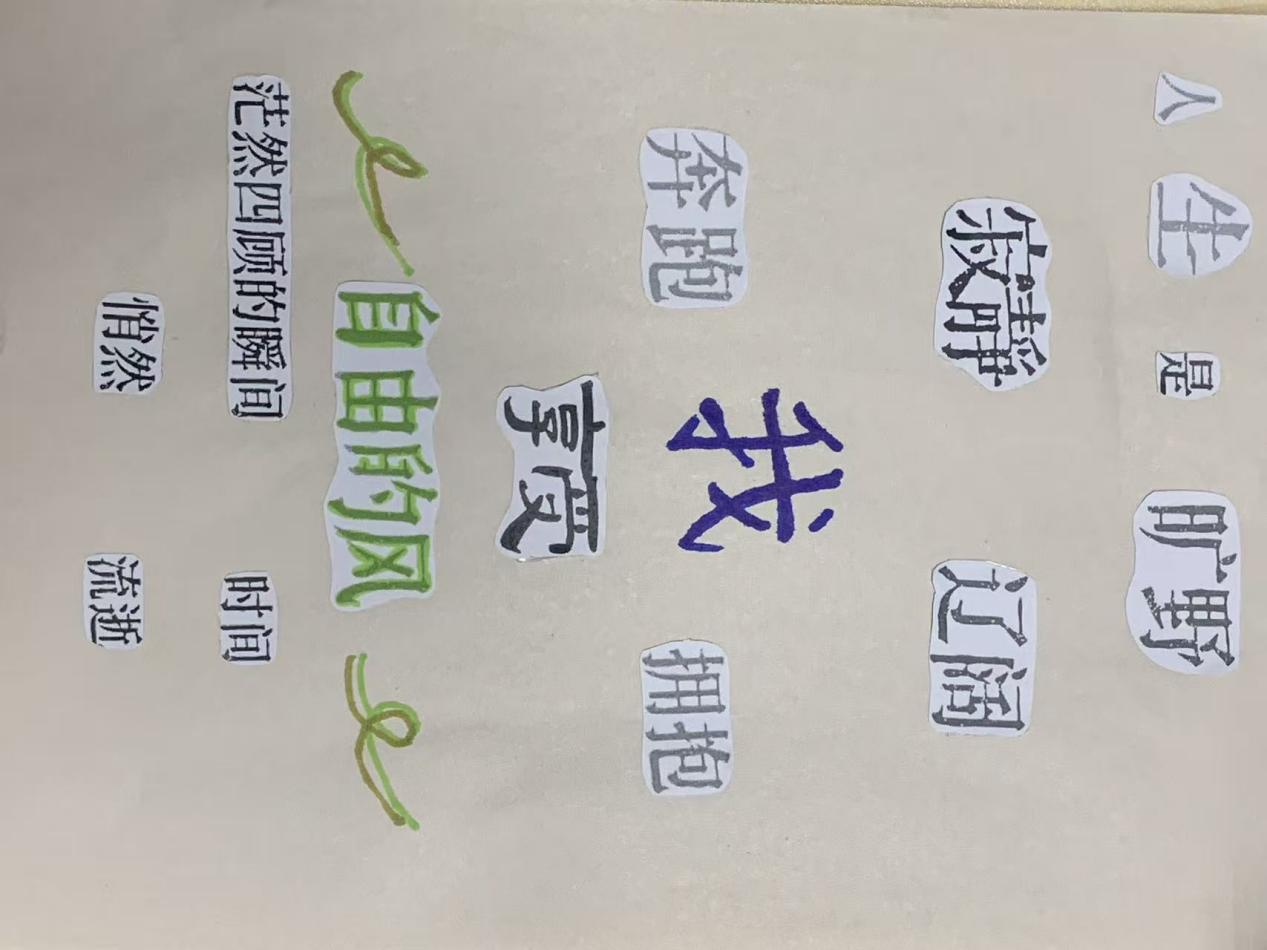 人生是旷野
寂静 辽阔
我
奔跑 拥抱
享受
自由的风
茫然四顾的瞬间 时间
悄然 流逝